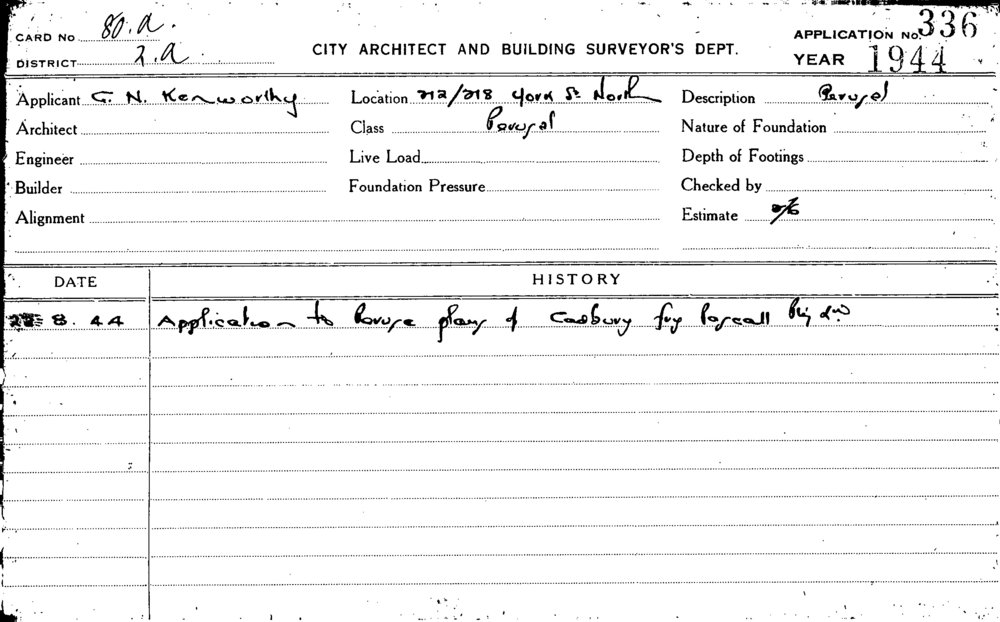 CARD No 80.a.
CITY ARCHITECT AND BUILDING SURVEYOR'S DEPT.
APPLICATION No. 336
DISTRICT 2.a
YEAR 1944
Applicant G. N. Kenworthy
Location 212/218 York St. North
Description Perusal
Architect
Class Perusal
Nature of Foundation
Engineer
Live Load
Depth of Footings
Builder
Foundation Pressure
Checked by
Alignment
Estimate 2/6
DATE HISTORY
8. 44 Application to Peruse plans of Cadbury Fry Pascall Pty Ltd